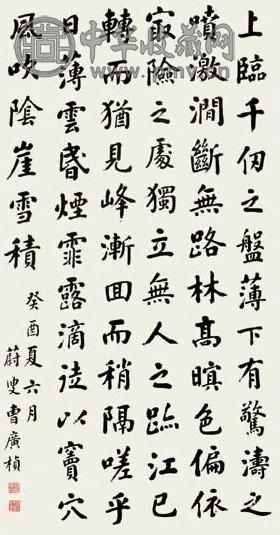 中华收藏网
上臨千仞之盤薄下有驚濤之
噴激澗斷無路林高暝色偏依
㝡險之處獨立無人之跡江已
轉而猶見峰漸回而稍隔嗟乎
日溥雲昏煙霏露滴徒以竇穴
風吹陰崖雪積
癸酉夏六月
蔚叟曹廣楨